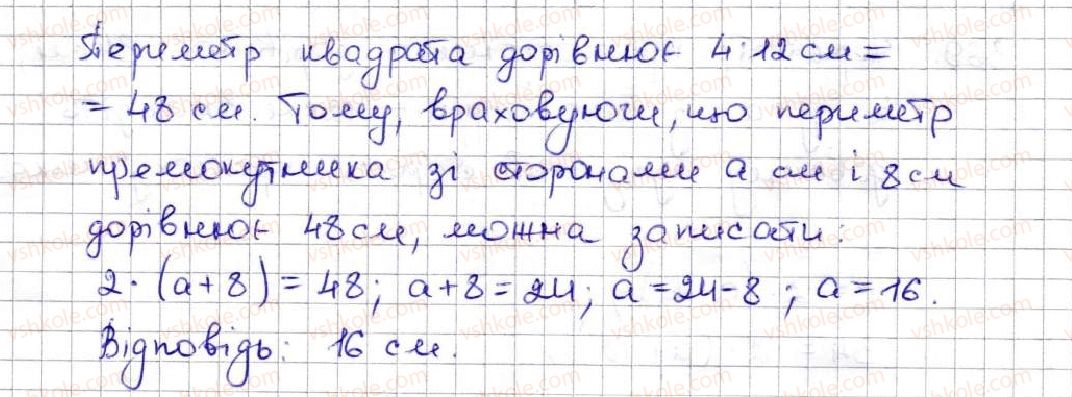 Периметр квадрата дорівнює 4·12 см =
= 48 см. Тому, враховуючи, що периметр
прямокутника зі сторонами a см і 8 см
дорівнює 48 см, можна записати:
2·(a+8)=48; a+8=24; a=24-8; a=16.
Відповідь: 16 см.